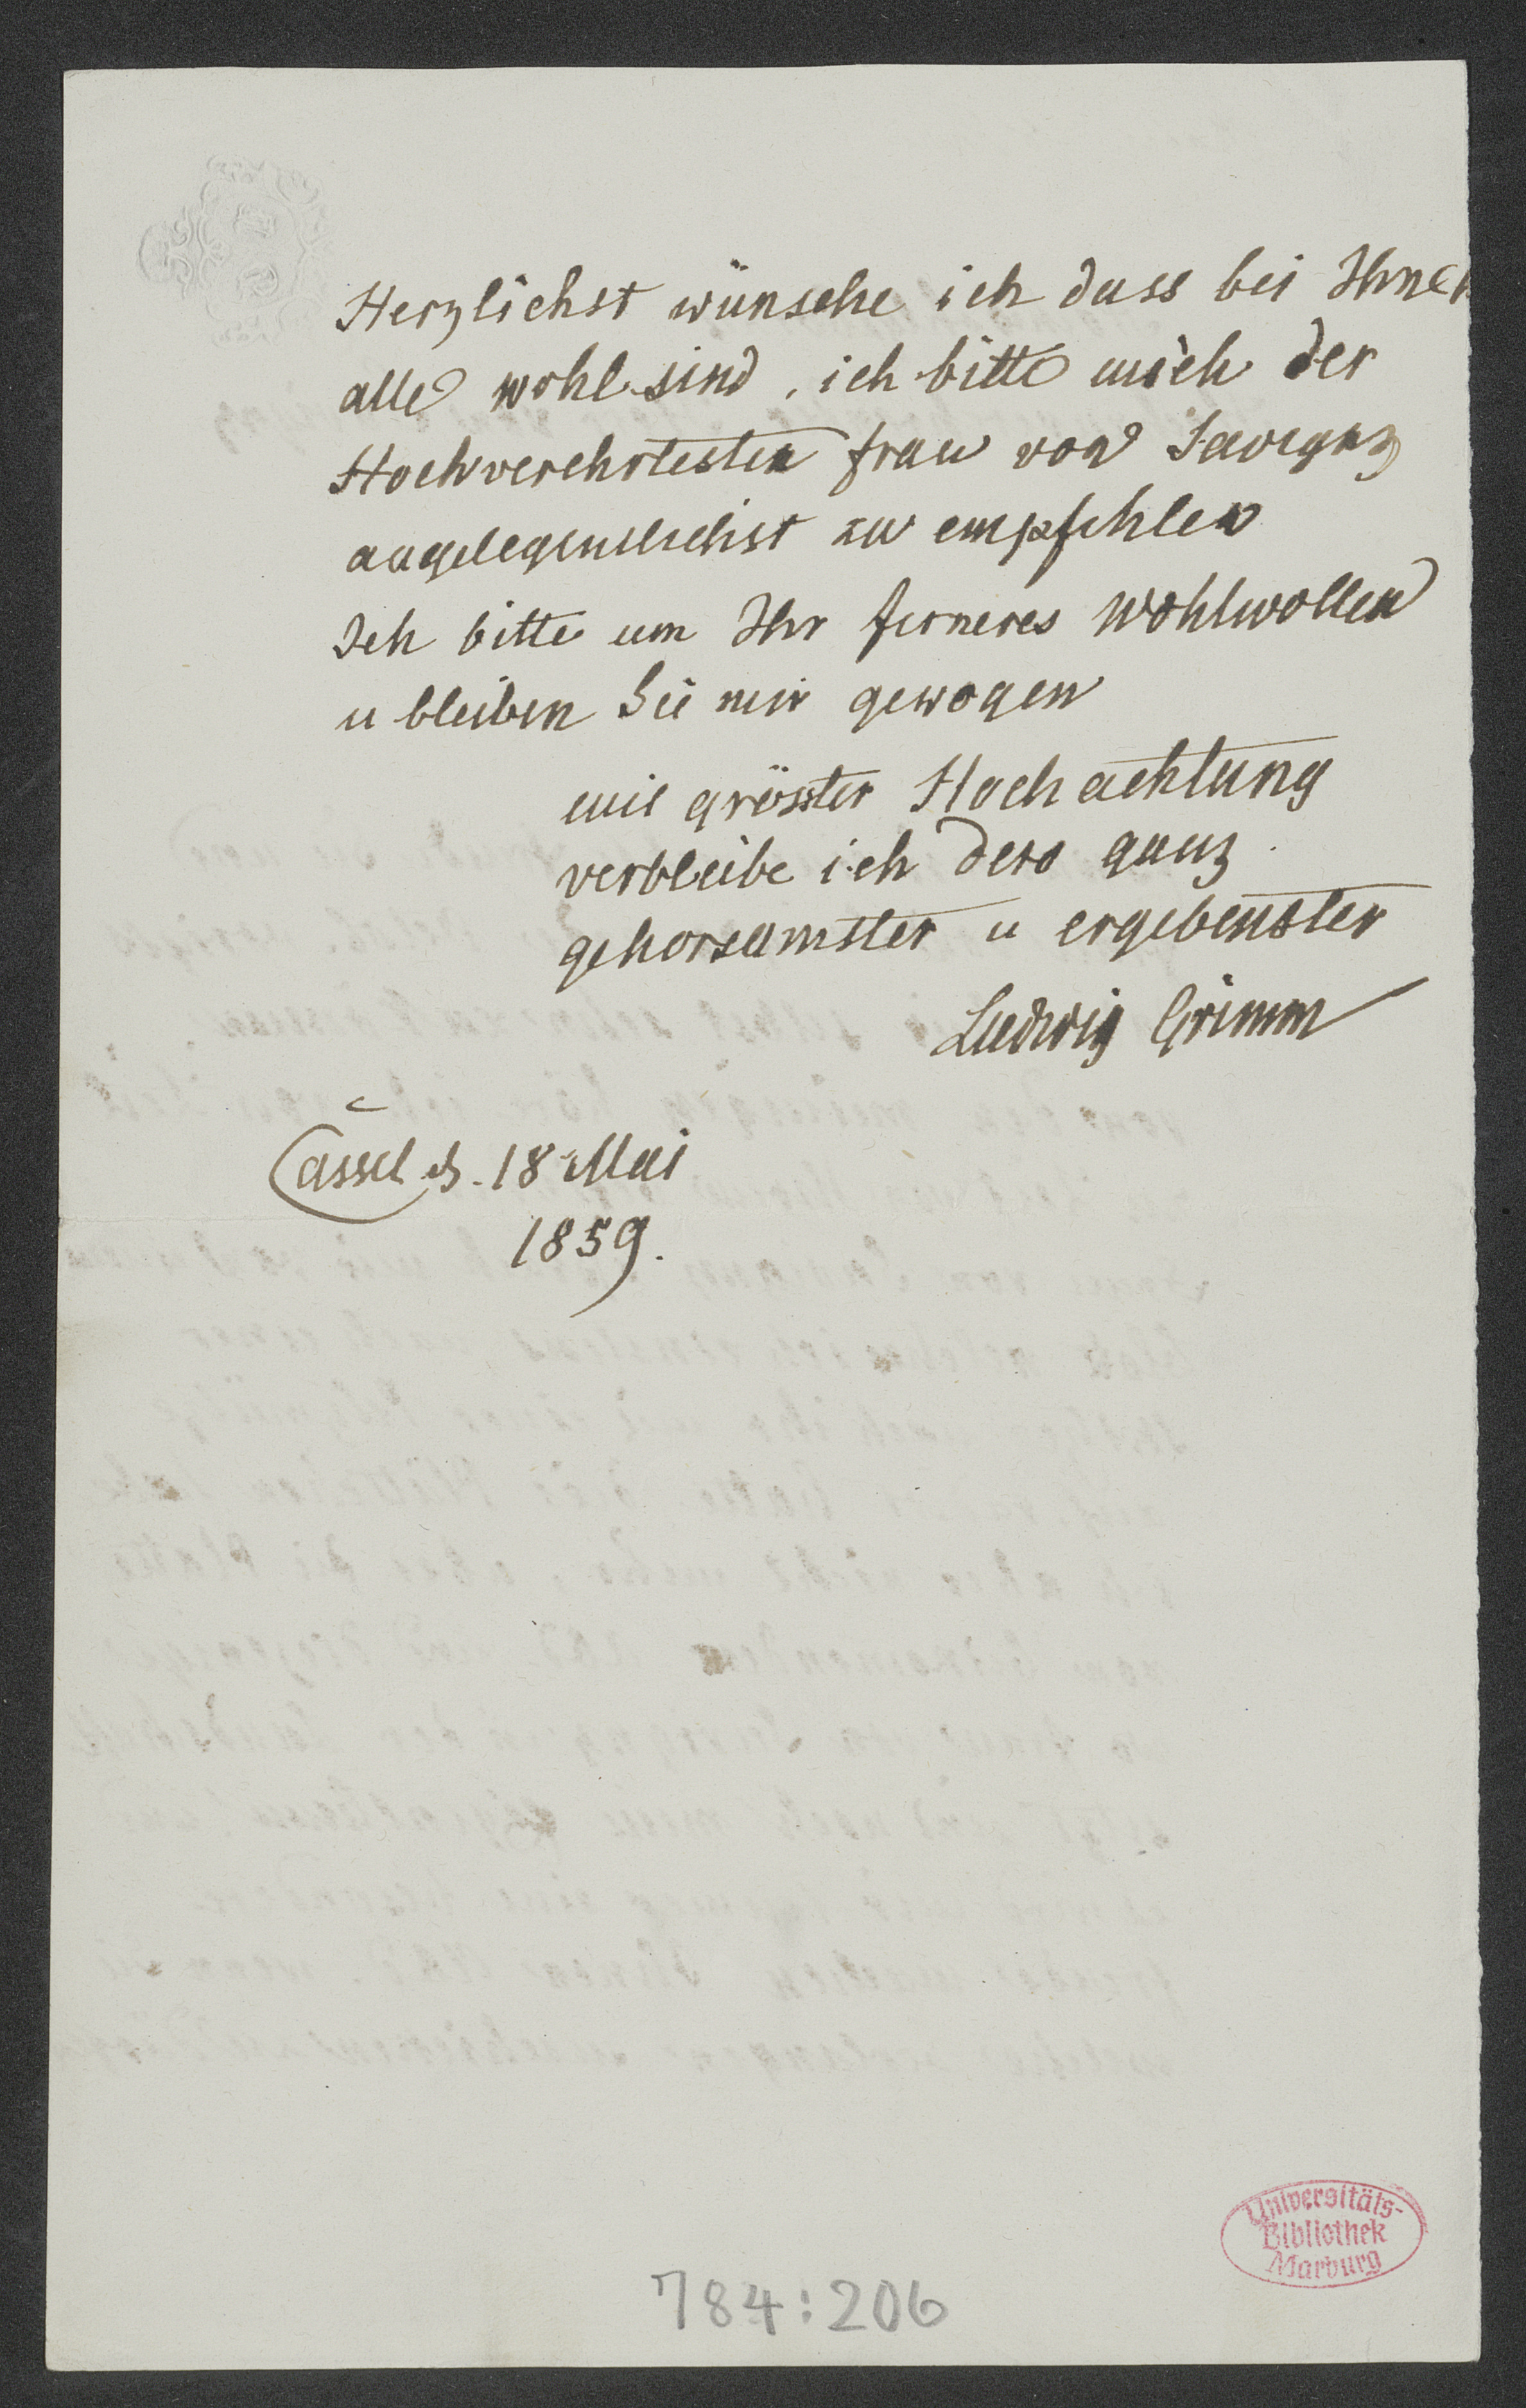 Herzlichst wünsche ich dass bei Ihnen
alle wohl sind, ich bitte mich der
Hochverehrtesten Frau von Savigny
angelegentlichst zu empfehlen
Ich bitte um Ihr ferneres Wohlwollen
u bleiben Sie mir gewogen
mit grösster Hochachtung
verbleibe ich dero ganz
gehorsamster u ergebenster
Ludwig Grimm
Cassel d. 18 Mai
1859.
Universitäts-
Bibliothek
Marburg
784:206